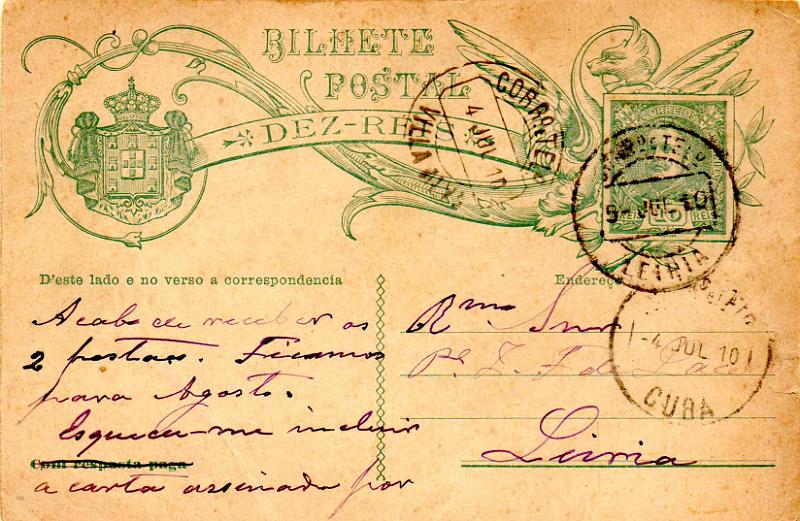 BILHETE
POSTAL
DEZ-REIS
CORREIOS
REIS
CORREIO
4 JUL 10
VILLA
5 JUL 10
LEIRIA
-4 JUL 10
CUBA
D'este lado e no verso a correspondencia
Acabo de receber os
2 postaes. Ficamos
para Agosto.
Esqueceu-me incluir
Com resposta paga
a carta assinada por
Endereço
Rmo Snr
Pe. J. F. da
Leiria